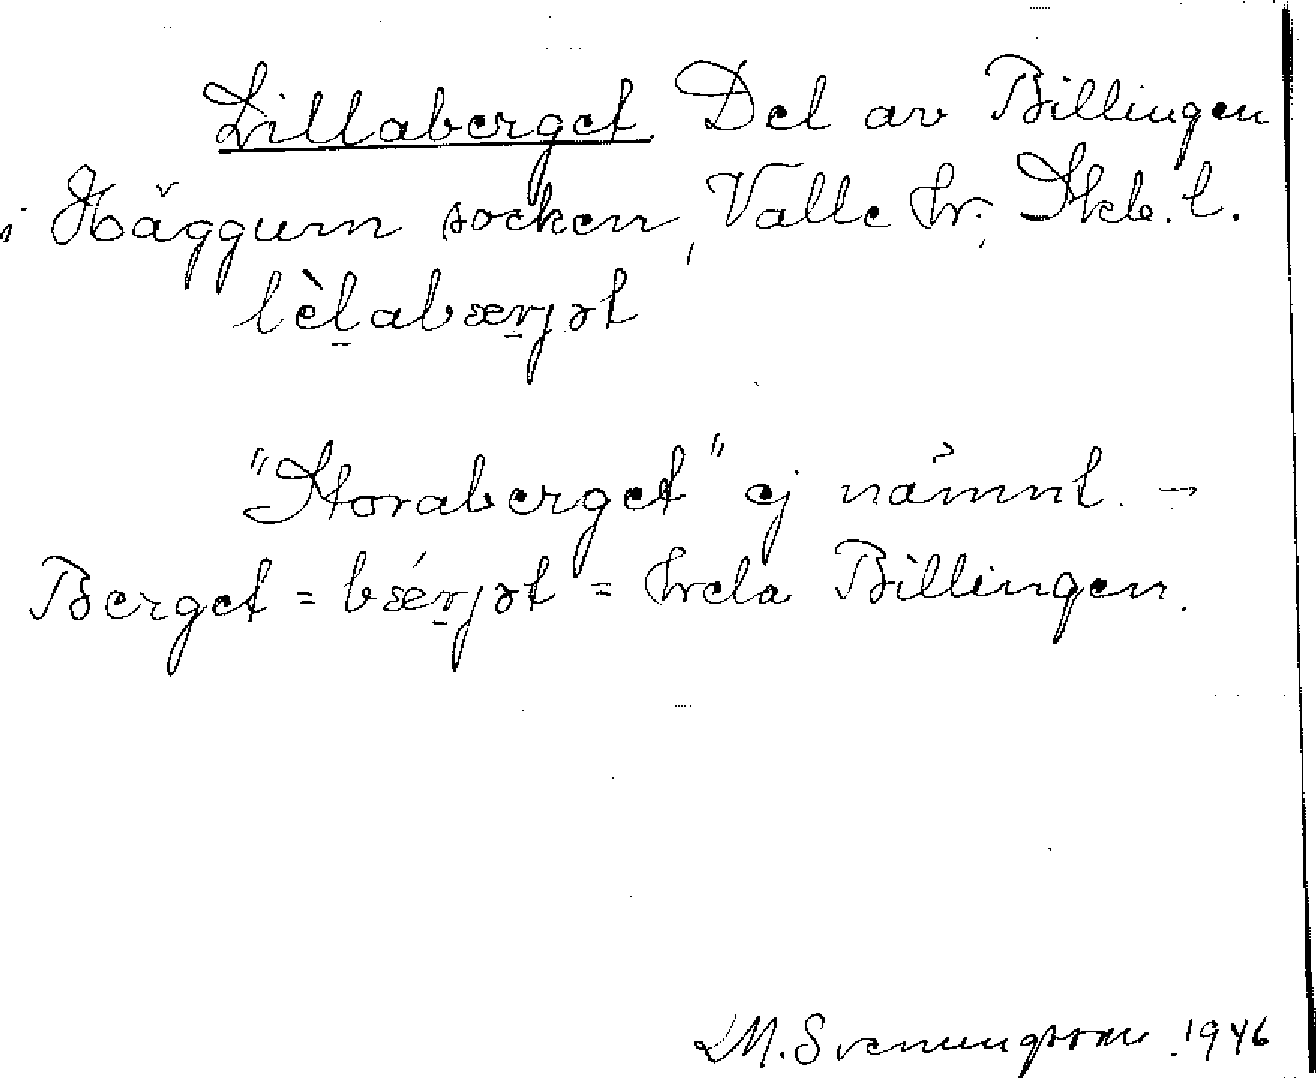 Lillaberget Del av Billingen
i Häggum socken, Valle hr, Skb. l.
lèl̠abær̠jət
"Storaberget" ej nämnt. –
Berget = bǽr̠jət = hela Billingen.
M. Svenungsson 1946